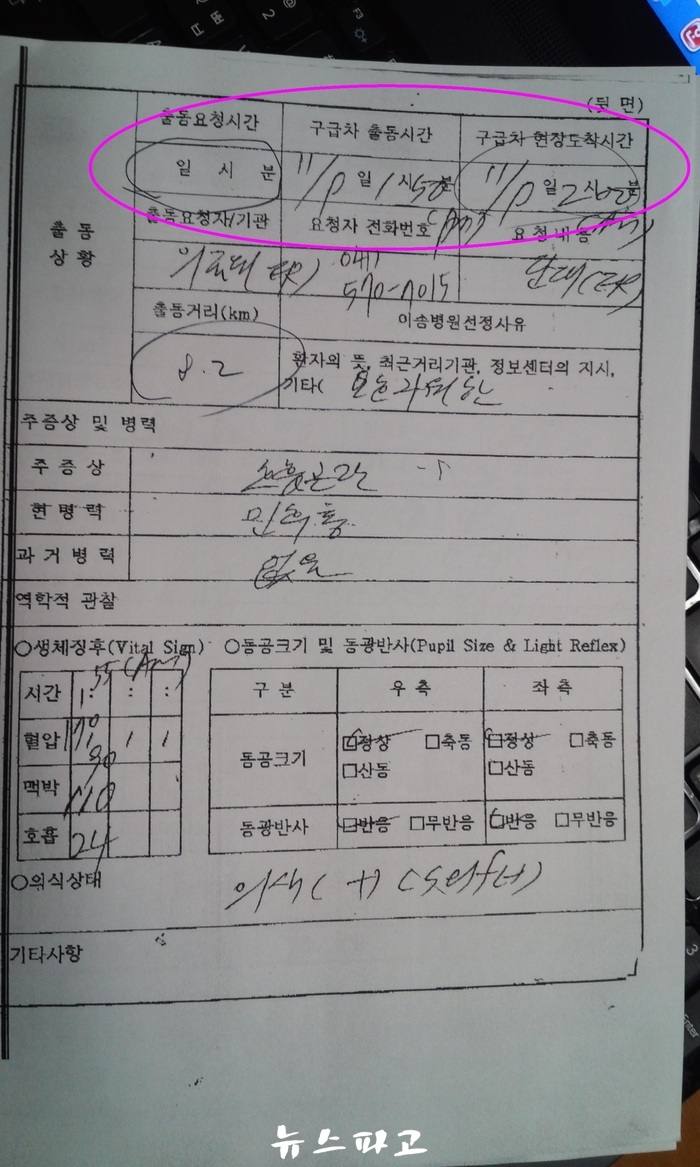 (뒷 면)
출동요청시간 구급차 출동시간 구급차 현장도착시간
일 시 분 11/10 일 1 시 50 분 11/10 일 2 시 00 분
(Am) (Am)
출동 상황
출동요청자/기관 요청자 전화번호 요청내용
(ER) 041) 570-7015 단대(ER)
출동거리(km) 이송병원선정사유
8.2
환자의 뜻, 최근거리기관, 정보센터의 지시,
기타(
주증상 및 병력
주 증 상 호흡곤란
현 병 력
과 거 병 력 없음
역학적 관찰
○생체징후(Vital Sign) ○동공크기 및 동광반사(Pupil Size & Light Reflex)
시간 1:55(Am) : :
혈압 170/90 / /
맥박 110
호흡 24
구 분 우 측 좌 측
동공크기 □정상 □축동 □정상 □축동
□산동 □산동
동광반사 □반응 □무반응 □반응 □무반응
○의식상태 의식(+)
기타사항
뉴스파고